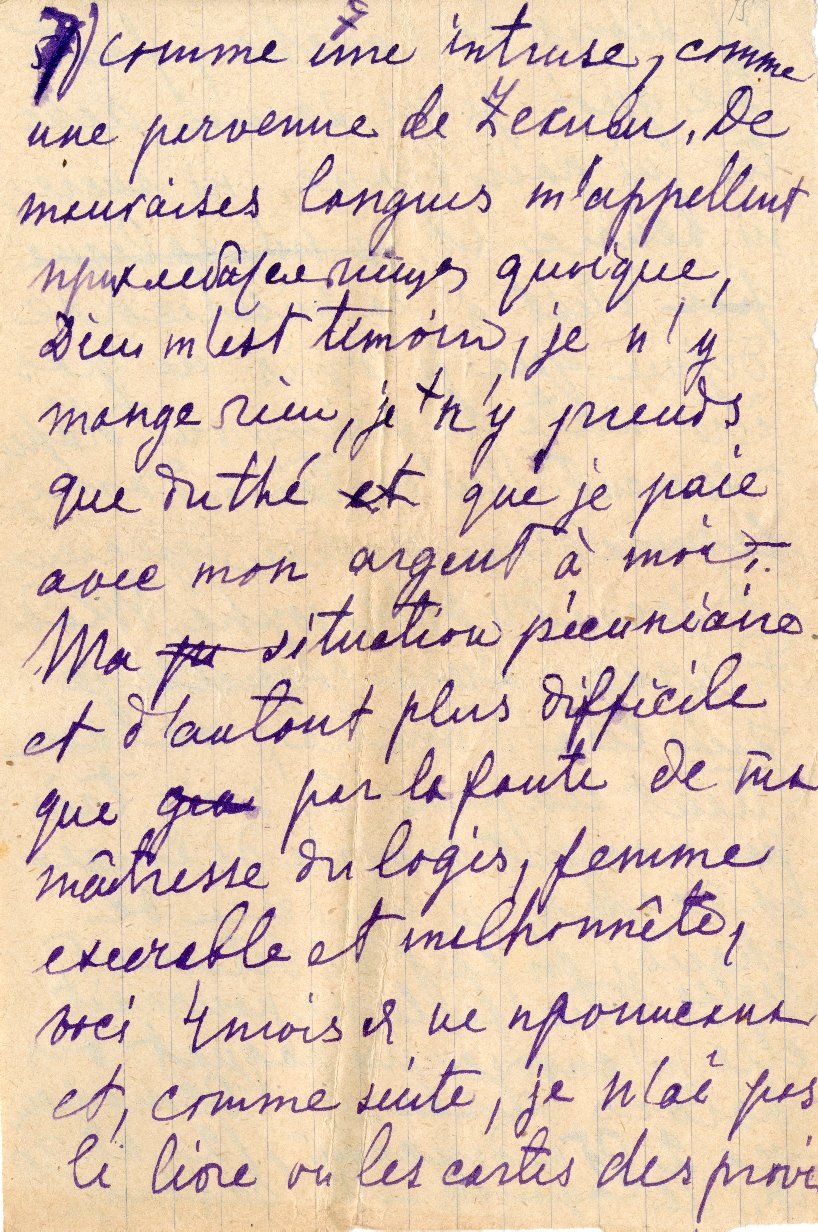 7) comme une intruse, comme
une parvenue de. De
mauvaises langues m'appellent
прихлебательницея quoique,
Dieu m'est témoin, je n'y
mange rien, je n'y prends
que du thé et que je paie
avec mon argent à moi.
Ma situation pécuniaire
et d'autant plus difficile
que par la faute de ma
maîtresse du logis, femme
execrable et malhonnête,
voci 4 mois я не прописана
et, comme suite, je n'ai pas
le livre ou les cartes des provi